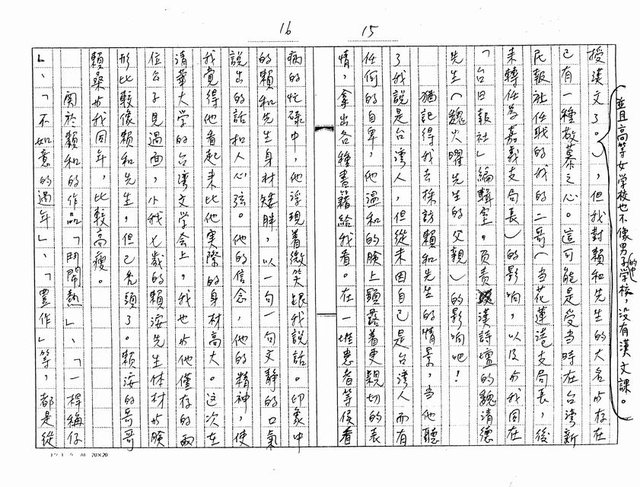 15
並且高等女學校也不像男子學校,沒有漢文課。
授漢文了。),但我對賴和先生的大名亦存在
已有一種敬慕之心。這可能是受當時在台灣新
民報社任職的我的二哥(當花蓮港支局長,後
來轉任為嘉義支局長)的影响,以及与我同在
「台日報社」編輯室,負責漢詩壇的魏清德
先生(魏火曜先生的父親)的影响吧!
猶記得我去採訪賴和先生的情景,當他聽
了我說是台灣人,但從未因自己是台灣人而有
任何的自卑,他溫和的臉上顯露着更親切的表
情,拿出各種書籍給我看。在一堆患者等侯着
16
病的忙碌中,他浮現着微笑跟我說話。印象中
的賴和先生身材矮胖,以一句一句文靜的口氣
說出的話和人心弦。他的信念,他的精神,使
我覺得他看起來比他實際的身材高大。這次在
清華大学的台湾文学会上,我也与他僅存的兩
位公子見過面,小我七歲的賴洝先生体材与臉
形比較像賴和先生,但已禿頭了。賴洝的哥哥
賴燊与我同年,比較高瘦。
関於賴和的作品「鬥鬧熱」、「一桿稱仔
」、「不如意的過年」、「豐作」等,都是從